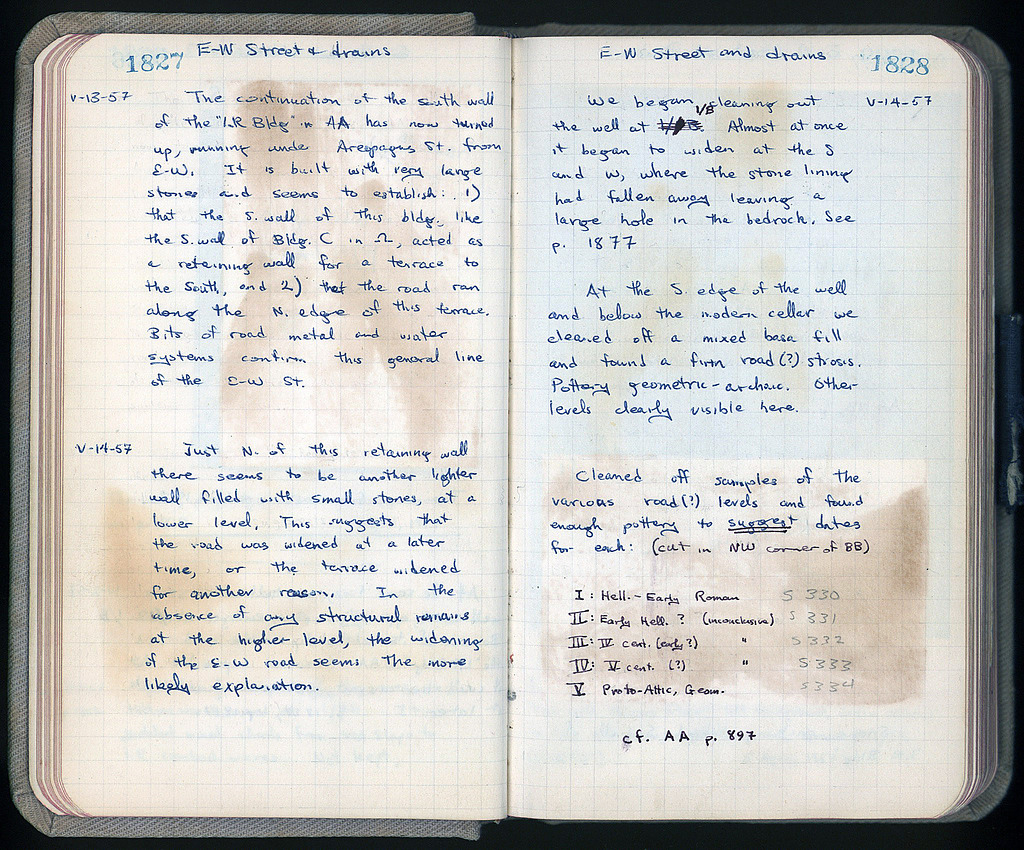 1827
E-W Street & drains
V-13-57
The continuation of the south wall
of the "LR Bldg" in AA has now turned
up, running under Areopagus St. from
E-W. It is built with very large
stones and seems to establish: 1)
that the S. wall of this bldg. like
the S. wall of Bldg. C in Ω, acted as
a retaining wall for a terrace to
the south, and 2) that the road ran
along the N. edge of this terrace.
Bits of road metal and water
systems confirm this general line
of the E-W St.
V-14-57
Just N. of this retaining wall
there seems to be another lighter
wall filled with small stones, at a
lower level. This suggests that
the road was widened at a later
time, or the terrace widened
for another reason. In the
absence of any structural remains
at the higher level, the widening
of the E-W road seems the more
likely explanation.
E-W Street and drains
1828
V-14-57
We began cleaning out
1/B
the well at Almost at once
it began to widen at the S
and W, where the stone lining
had fallen away leaving a
large hole in the bedrock. See
p. 1877
At the S. edge of the well
and below the modern cellar we
cleaned off a mixed basa fill
and found a firm road (?) strosis.
Pottery geometric-archaic. Other
levels clearly visible here.
Cleaned off samples of the
various road (?) levels and found
enough pottery to suggest dates
for each: (cut in NW corner of BB)
I: Hell. - Early Roman S 330
II: Early Hell. ? (inconclusive) S 331
III: IV cent. (early?) " S 332
IV: V cent. (?) " S 333
V Proto-Attic, Geom. S 334
cf. AA p. 897